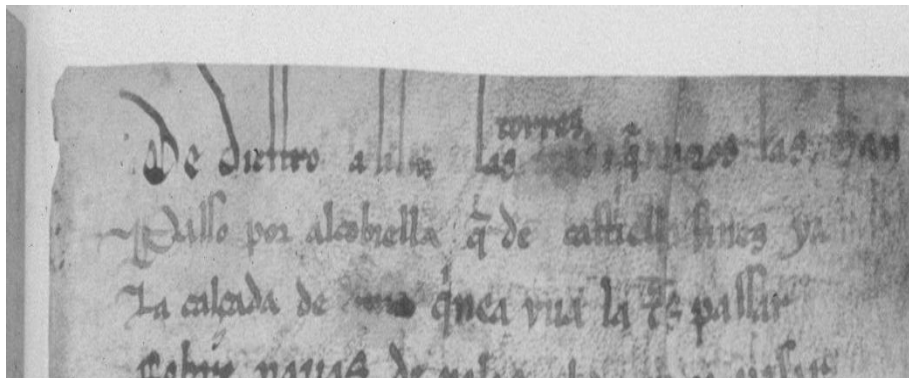 De diestro a lilon las torres q̃ moros las han
Passo por alcobiella q̃ de castiella fin es ya
La calçada de q'nea yua la t̃s passar
Sobre nauas de